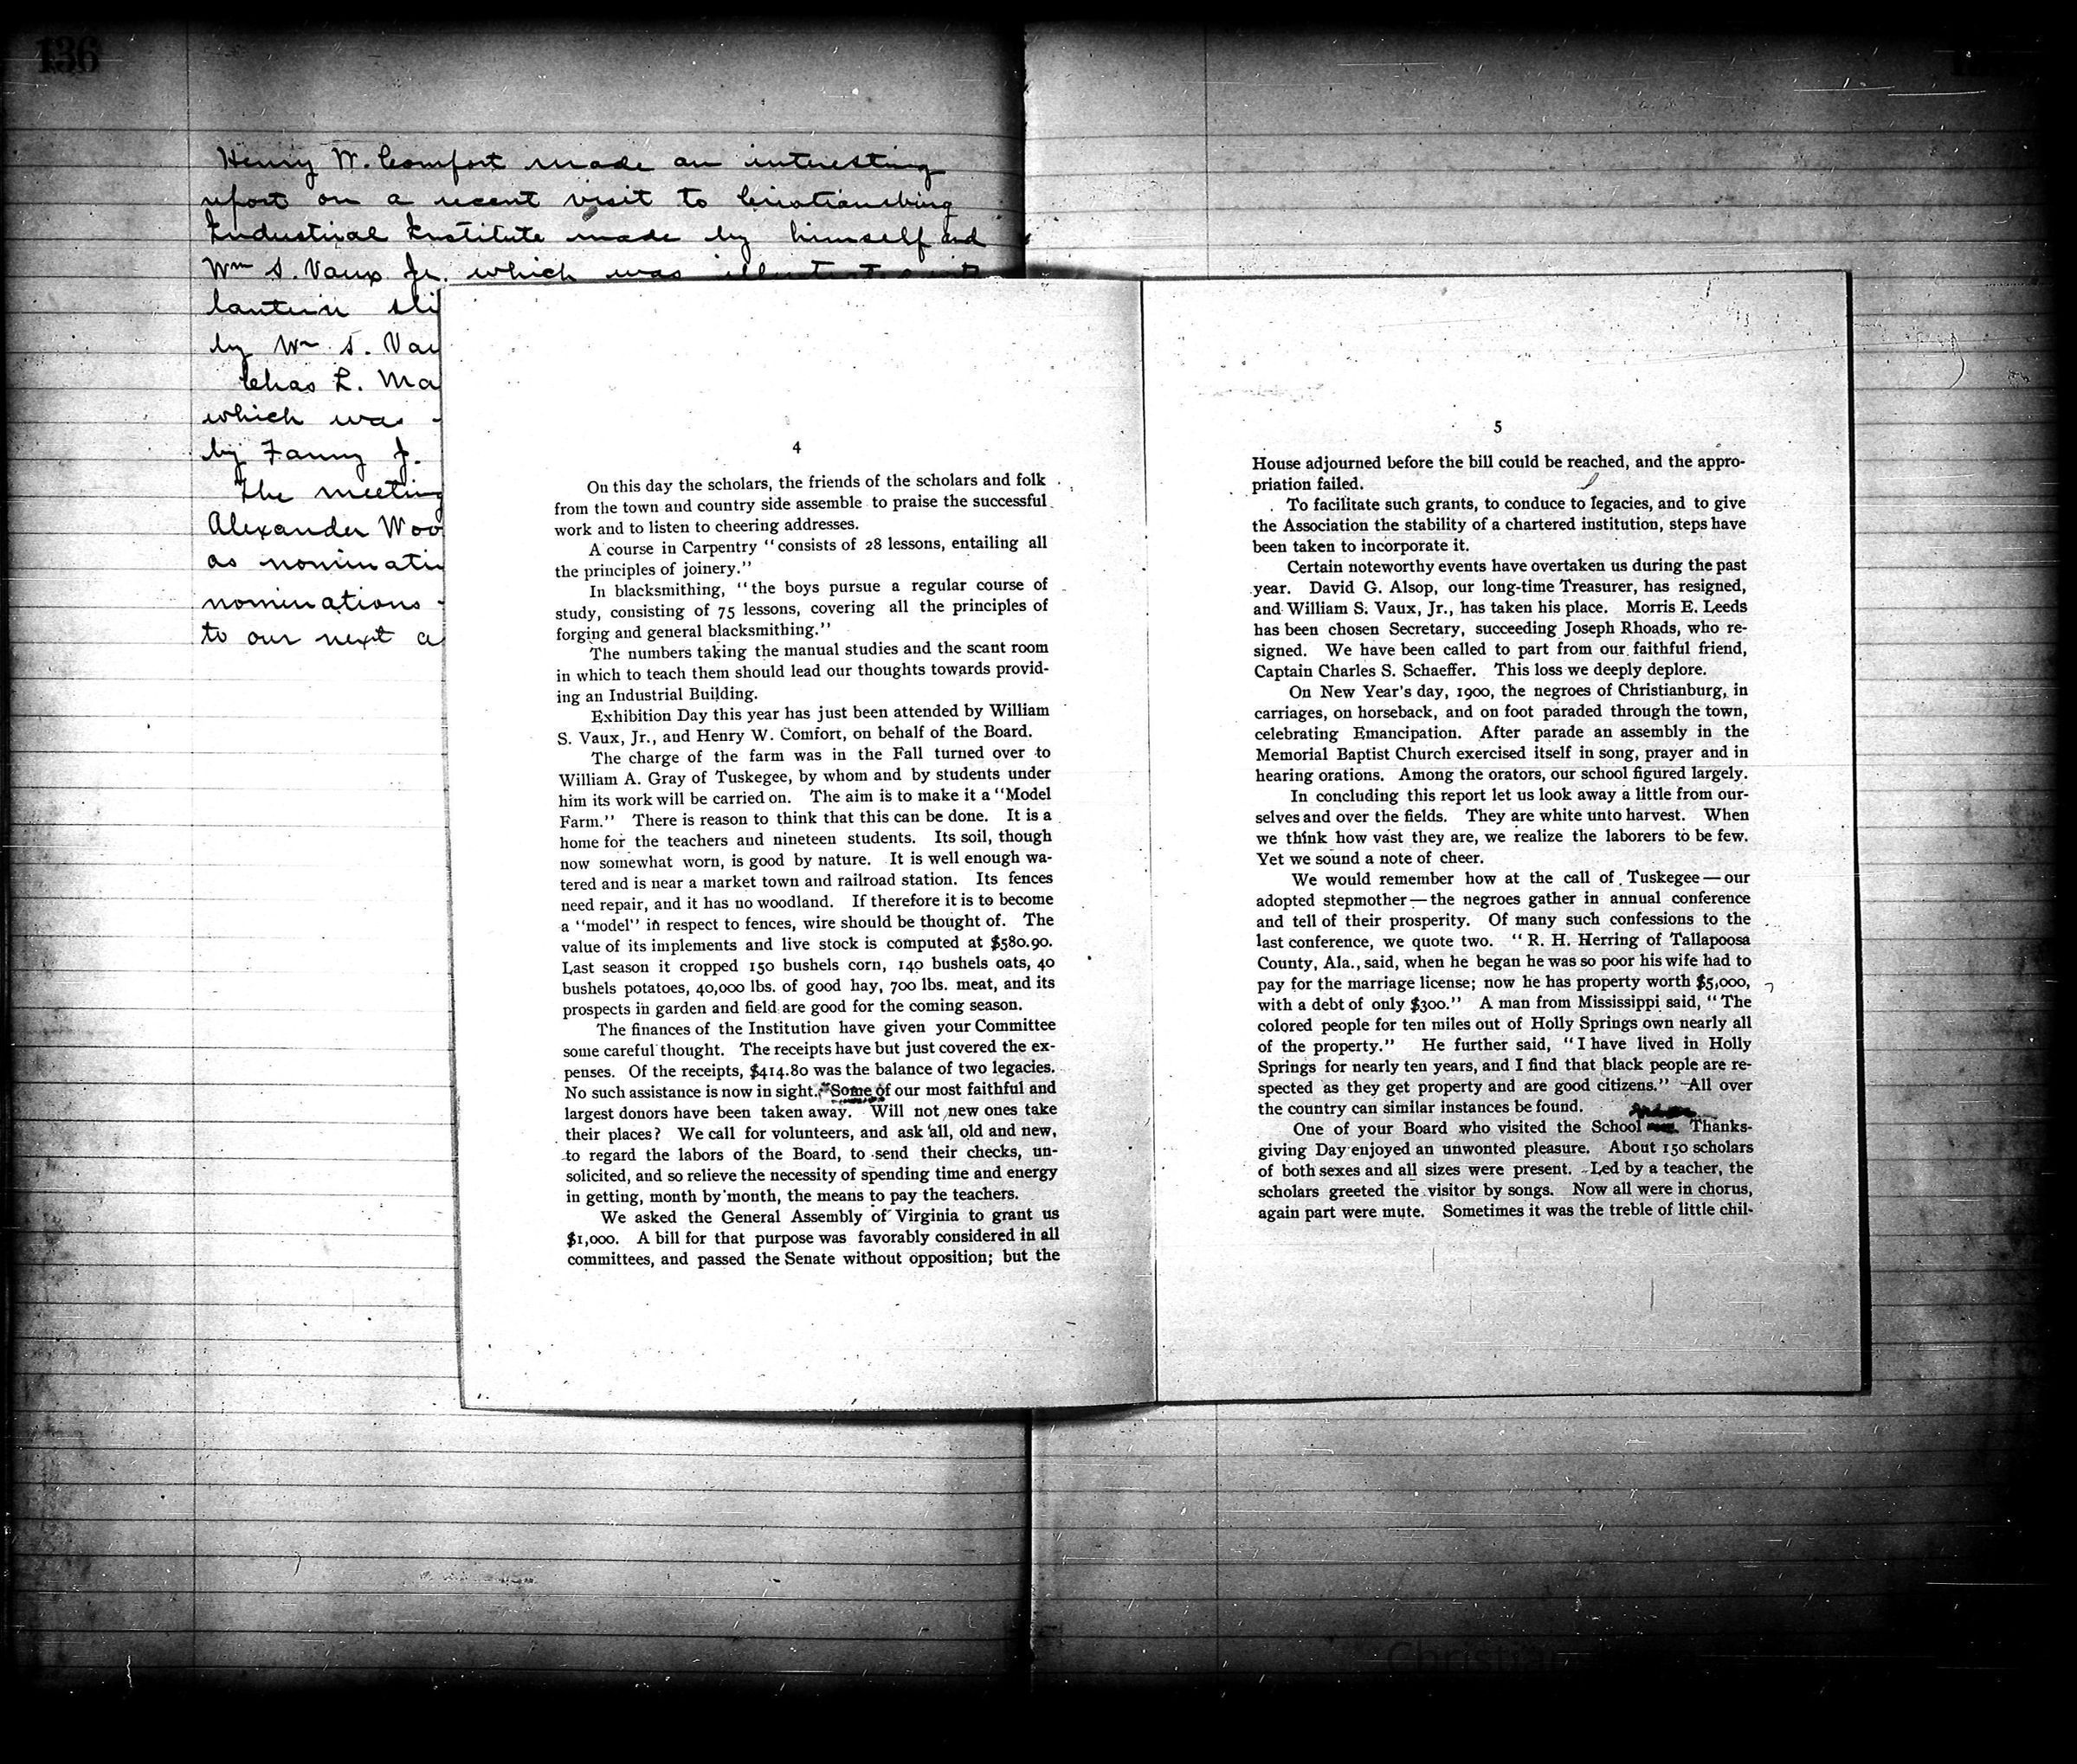 136
Henry W. Comfort made an interesting
report on a recent visit to Christiansburg
Industrial Institute made by himself and
Wm S. Vaux Jr. which was
lantern
by Wm S.
Chas L.
which was
by Fanny J.
The meeting
Alexander
as
nominations
to our next
4
On this day the scholars, the friends of the scholars and folk
from the town and country side assemble to praise the successful
work and to listen to cheering addresses.
A course in Carpentry "consists of 28 lessons, entailing all
the principles of joinery."
In blacksmithing, "the boys pursue a regular course of
study, consisting of 75 lessons, covering all the principles of
forging and general blacksmithing."
The numbers taking the manual studies and the scant room
in which to teach them should lead our thoughts towards provid-
ing an Industrial Building.
Exhibition Day this year has just been attended by William
S. Vaux, Jr., and Henry W. Comfort, on behalf of the Board.
The charge of the farm was in the Fall turned over to
William A. Gray of Tuskegee, by whom and by students under
him its work will be carried on. The aim is to make it a "Model
Farm." There is reason to think that this can be done. It is a
home for the teachers and nineteen students. Its soil, though
now somewhat worn, is good by nature. It is well enough wa-
tered and is near a market town and railroad station. Its fences
need repair, and it has no woodland. If therefore it is to become
a "model" in respect to fences, wire should be thought of. The
value of its implements and live stock is computed at $580.90.
Last season it cropped 150 bushels corn, 140 bushels oats, 40
bushels potatoes, 40,000 lbs. of good hay, 700 lbs. meat, and its
prospects in garden and field are good for the coming season.
The finances of the Institution have given your Committee
some careful thought. The receipts have but just covered the ex-
penses. Of the receipts, $414.80 was the balance of two legacies.
No such assistance is now in sight. Some of our most faithful and
largest donors have been taken away. Will not new ones take
their places? We call for volunteers, and ask all, old and new,
to regard the labors of the Board, to send their checks, un-
solicited, and so relieve the necessity of spending time and energy
in getting, month by month, the means to pay the teachers.
We asked the General Assembly of Virginia to grant us
$1,000. A bill for that purpose was favorably considered in all
committees, and passed the Senate without opposition; but the
5
House adjourned before the bill could be reached, and the appro-
priation failed.
To facilitate such grants, to conduce to legacies, and to give
the Association the stability of a chartered institution, steps have
been taken to incorporate it.
Certain noteworthy events have overtaken us during the past
year. David G. Alsop, our long-time Treasurer, has resigned,
and William S. Vaux, Jr., has taken his place. Morris E. Leeds
has been chosen Secretary, succeeding Joseph Rhoads, who re-
signed. We have been called to part from our faithful friend,
Captain Charles S. Schaeffer. This loss we deeply deplore.
On New Year's day, 1900, the negroes of Christianburg, in
carriages, on horseback, and on foot paraded through the town,
celebrating Emancipation. After parade an assembly in the
Memorial Baptist Church exercised itself in song, prayer and in
hearing orations. Among the orators, our school figured largely.
In concluding this report let us look away a little from our-
selves and over the fields. They are white unto harvest. When
we think how vast they are, we realize the laborers to be few.
Yet we sound a note of cheer.
We would remember how at the call of Tuskegee—our
adopted stepmother—the negroes gather in annual conference
and tell of their prosperity. Of many such confessions to the
last conference, we quote two. "R. H. Herring of Tallapoosa
County, Ala., said, when he began he was so poor his wife had to
pay for the marriage license; now he has property worth $5,000,
with a debt of only $300." A man from Mississippi said, "The
colored people for ten miles out of Holly Springs own nearly all
of the property." He further said, "I have lived in Holly
Springs for nearly ten years, and I find that black people are re-
spected as they get property and are good citizens." All over
the country can similar instances be found.
One of your Board who visited the School Thanks-
giving Day enjoyed an unwonted pleasure. About 150 scholars
of both sexes and all sizes were present. Led by a teacher, the
scholars greeted the visitor by songs. Now all were in chorus,
again part were mute. Sometimes it was the treble of little chil-